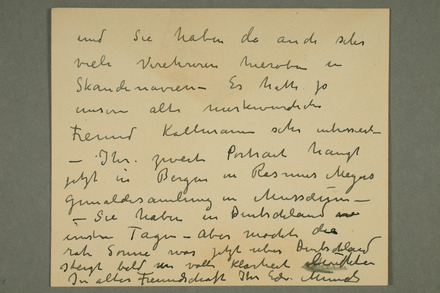 und Sie haben da auch sehr
viele Verehrer hieroben in
Skandinavien – Es hatte ja
unser alte merkwürdiche
Freund Kollmann sehr interessiert
– Ihr zweite Portrait hängt
jetzt in Bergen in Rasmus Meyers
gemaldesamlung in
– Sie haben in Deutschland
Tagen – Aber möchte die
rote Sonne was jetzt uber Deutschland
steigt bald in volle Klarheit
In alter Freundschaft Ihr Edv. Munch